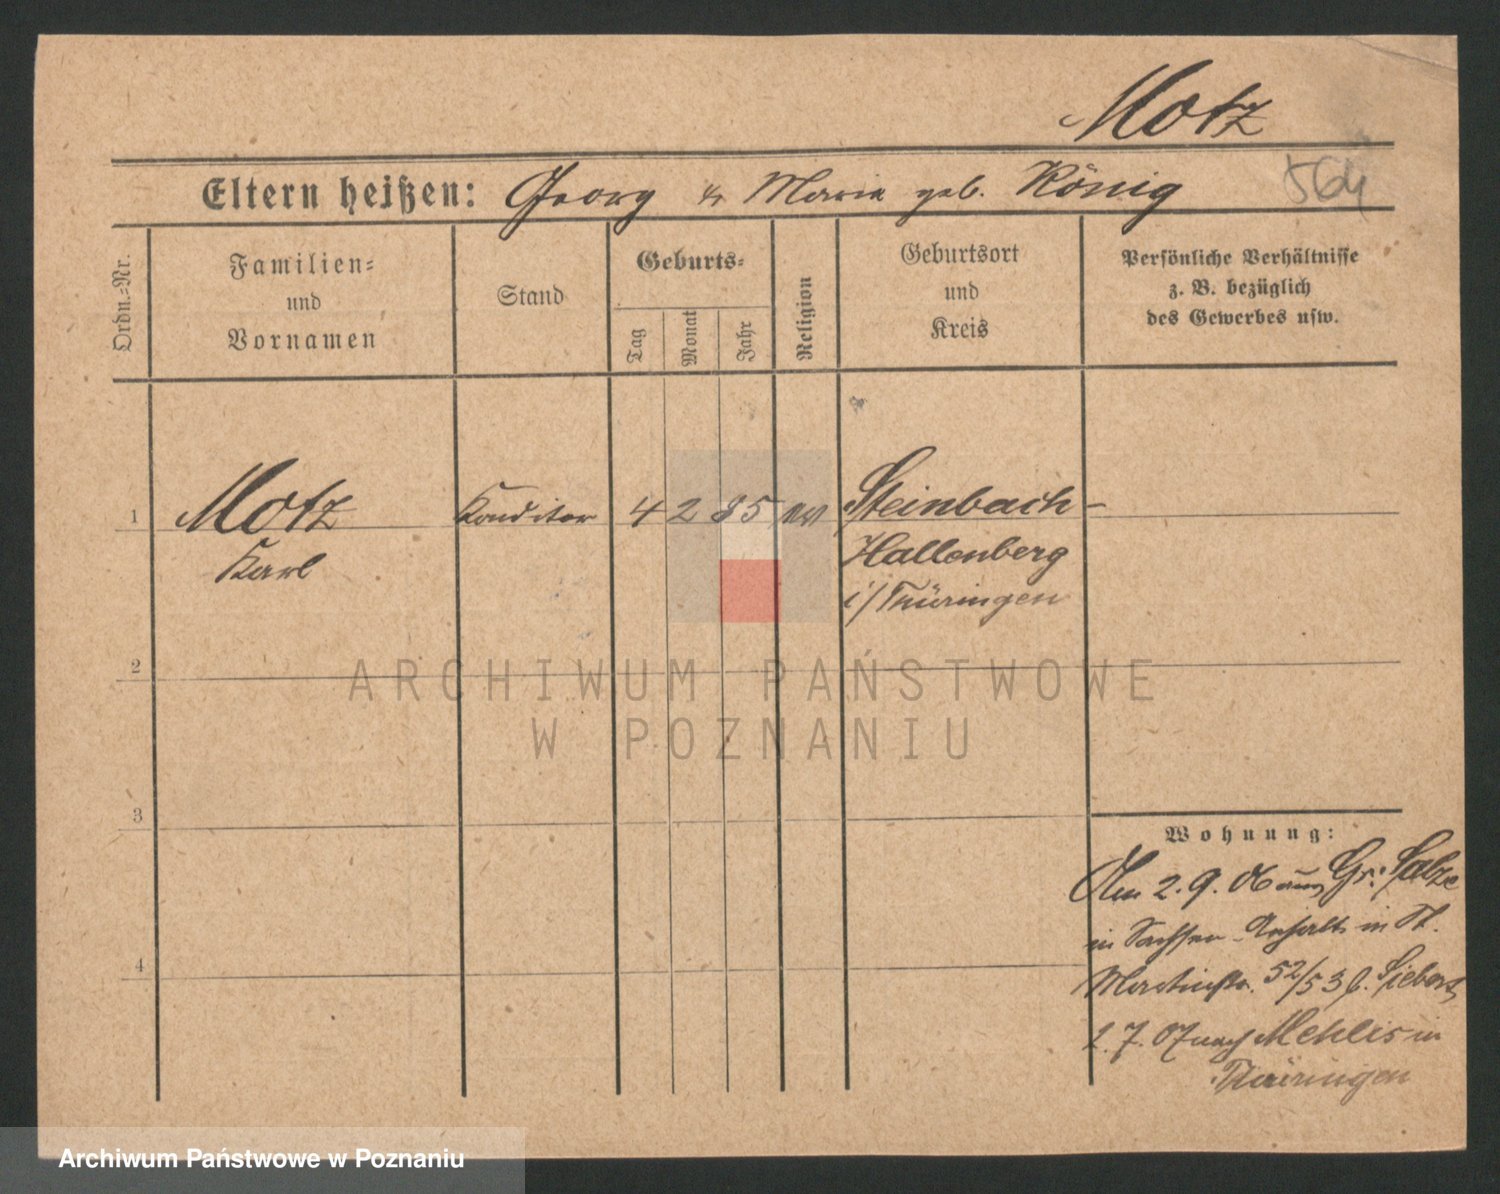 Motz
564
Eltern heißen: Georg u. Maria geb. König
Ordn.-Nr.
Familien-
und
Vornamen
Stand
Geburts-
Tag
Monat
Jahr
Religion
Geburtsort
und
Kreis
Persönliche Verhältnisse
z. B. bezüglich
des Gewerbes usw.
1
Motz
Karl
Konditor
4 2 85 ev
Steinbach-
Hallenberg
i/Thüringen
2
ARCHIWUM PAŃSTWOWE
W POZNANIU
3
4
Wohnung:
Am 2. 9. 06 aus Gr. Salze
in Sachsen-Anhalt in St.
Martinstr. 52/53 b. Siebert
2. 7. 07 nach Mehlis in
Thüringen
Archiwum Państwowe w Poznaniu